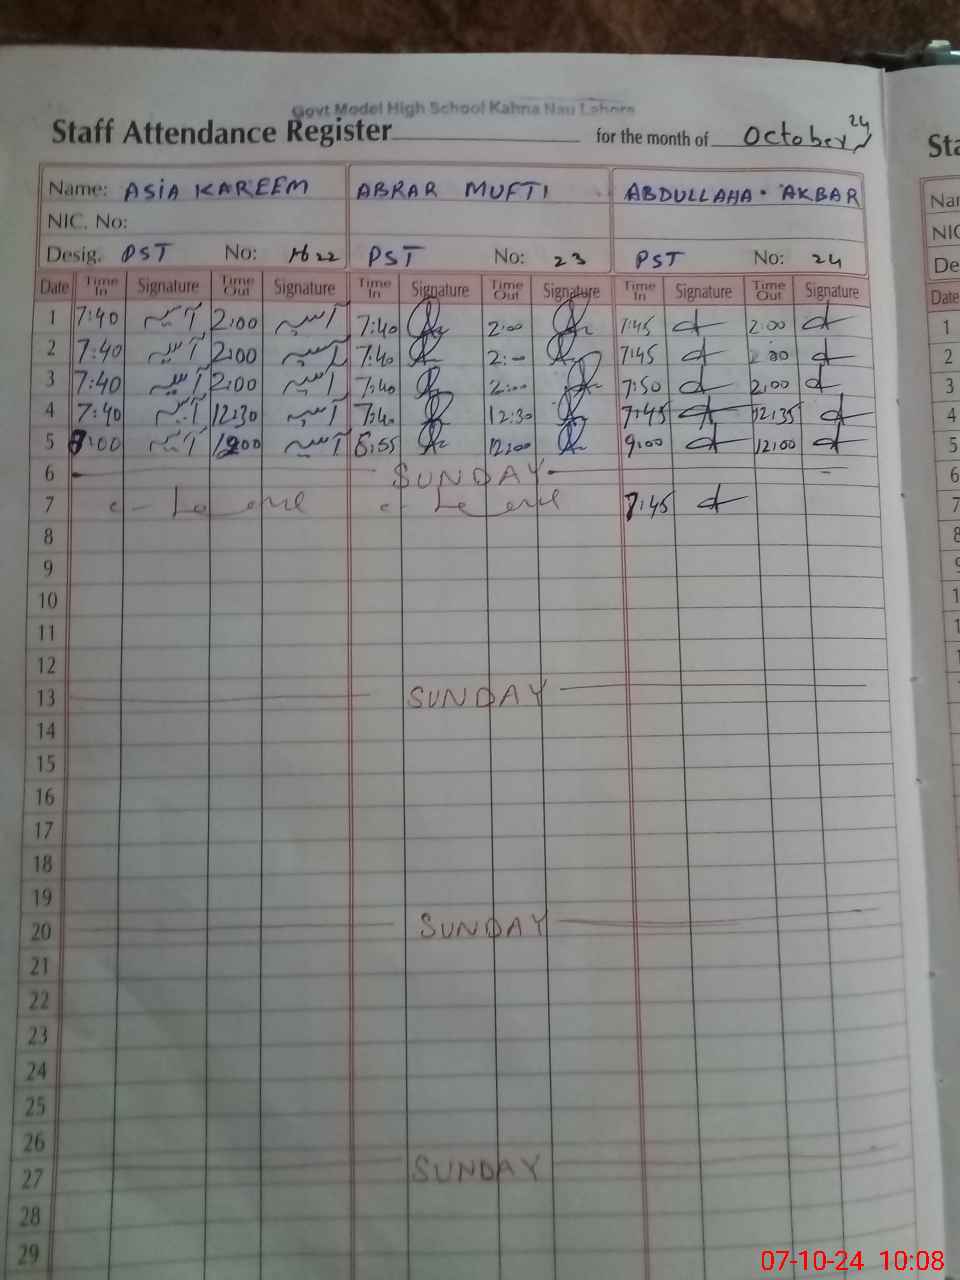 Govt Model High School Kahna Nau Lahore
Staff Attendance Register for the month of October 24
Name: ASIA KAREEM ABRAR MUFTI ABDULLAHA. AKBAR
NIC. No:
Desig. PST No: 22 PST No: 23 PST No: 24
Date Time In Signature Time Out Signature Time In Signature Time Out Signature Time In Signature Time Out Signature
1 7:40 آسیہ 2:00 آسیہ 7:40 2:00 7:45 2:00
2 7:40 آسیہ 2:00 آسیہ 7:40 2:- 7:45 2:00
3 7:40 آسیہ 2:00 آسیہ 7:40 2:00 7:50 2:00
4 7:40 آسیہ 12:30 آسیہ 7:40 12:30 7:45 12:35
5 :00 آسیہ 1200 آسیہ 12:00 9:00 12:00
6 SUNDAY
7 c- Leave c- Leave 7:45
8
9
10
11
12
13 SUNDAY
14
15
16
17
18
19
20 SUNDAY
21
22
23
24
25
26
27 SUNDAY
28
29
Sta
Nar
NIC
De
Date
1
2
3
4
5
6
7
8
07-10-24 10:08